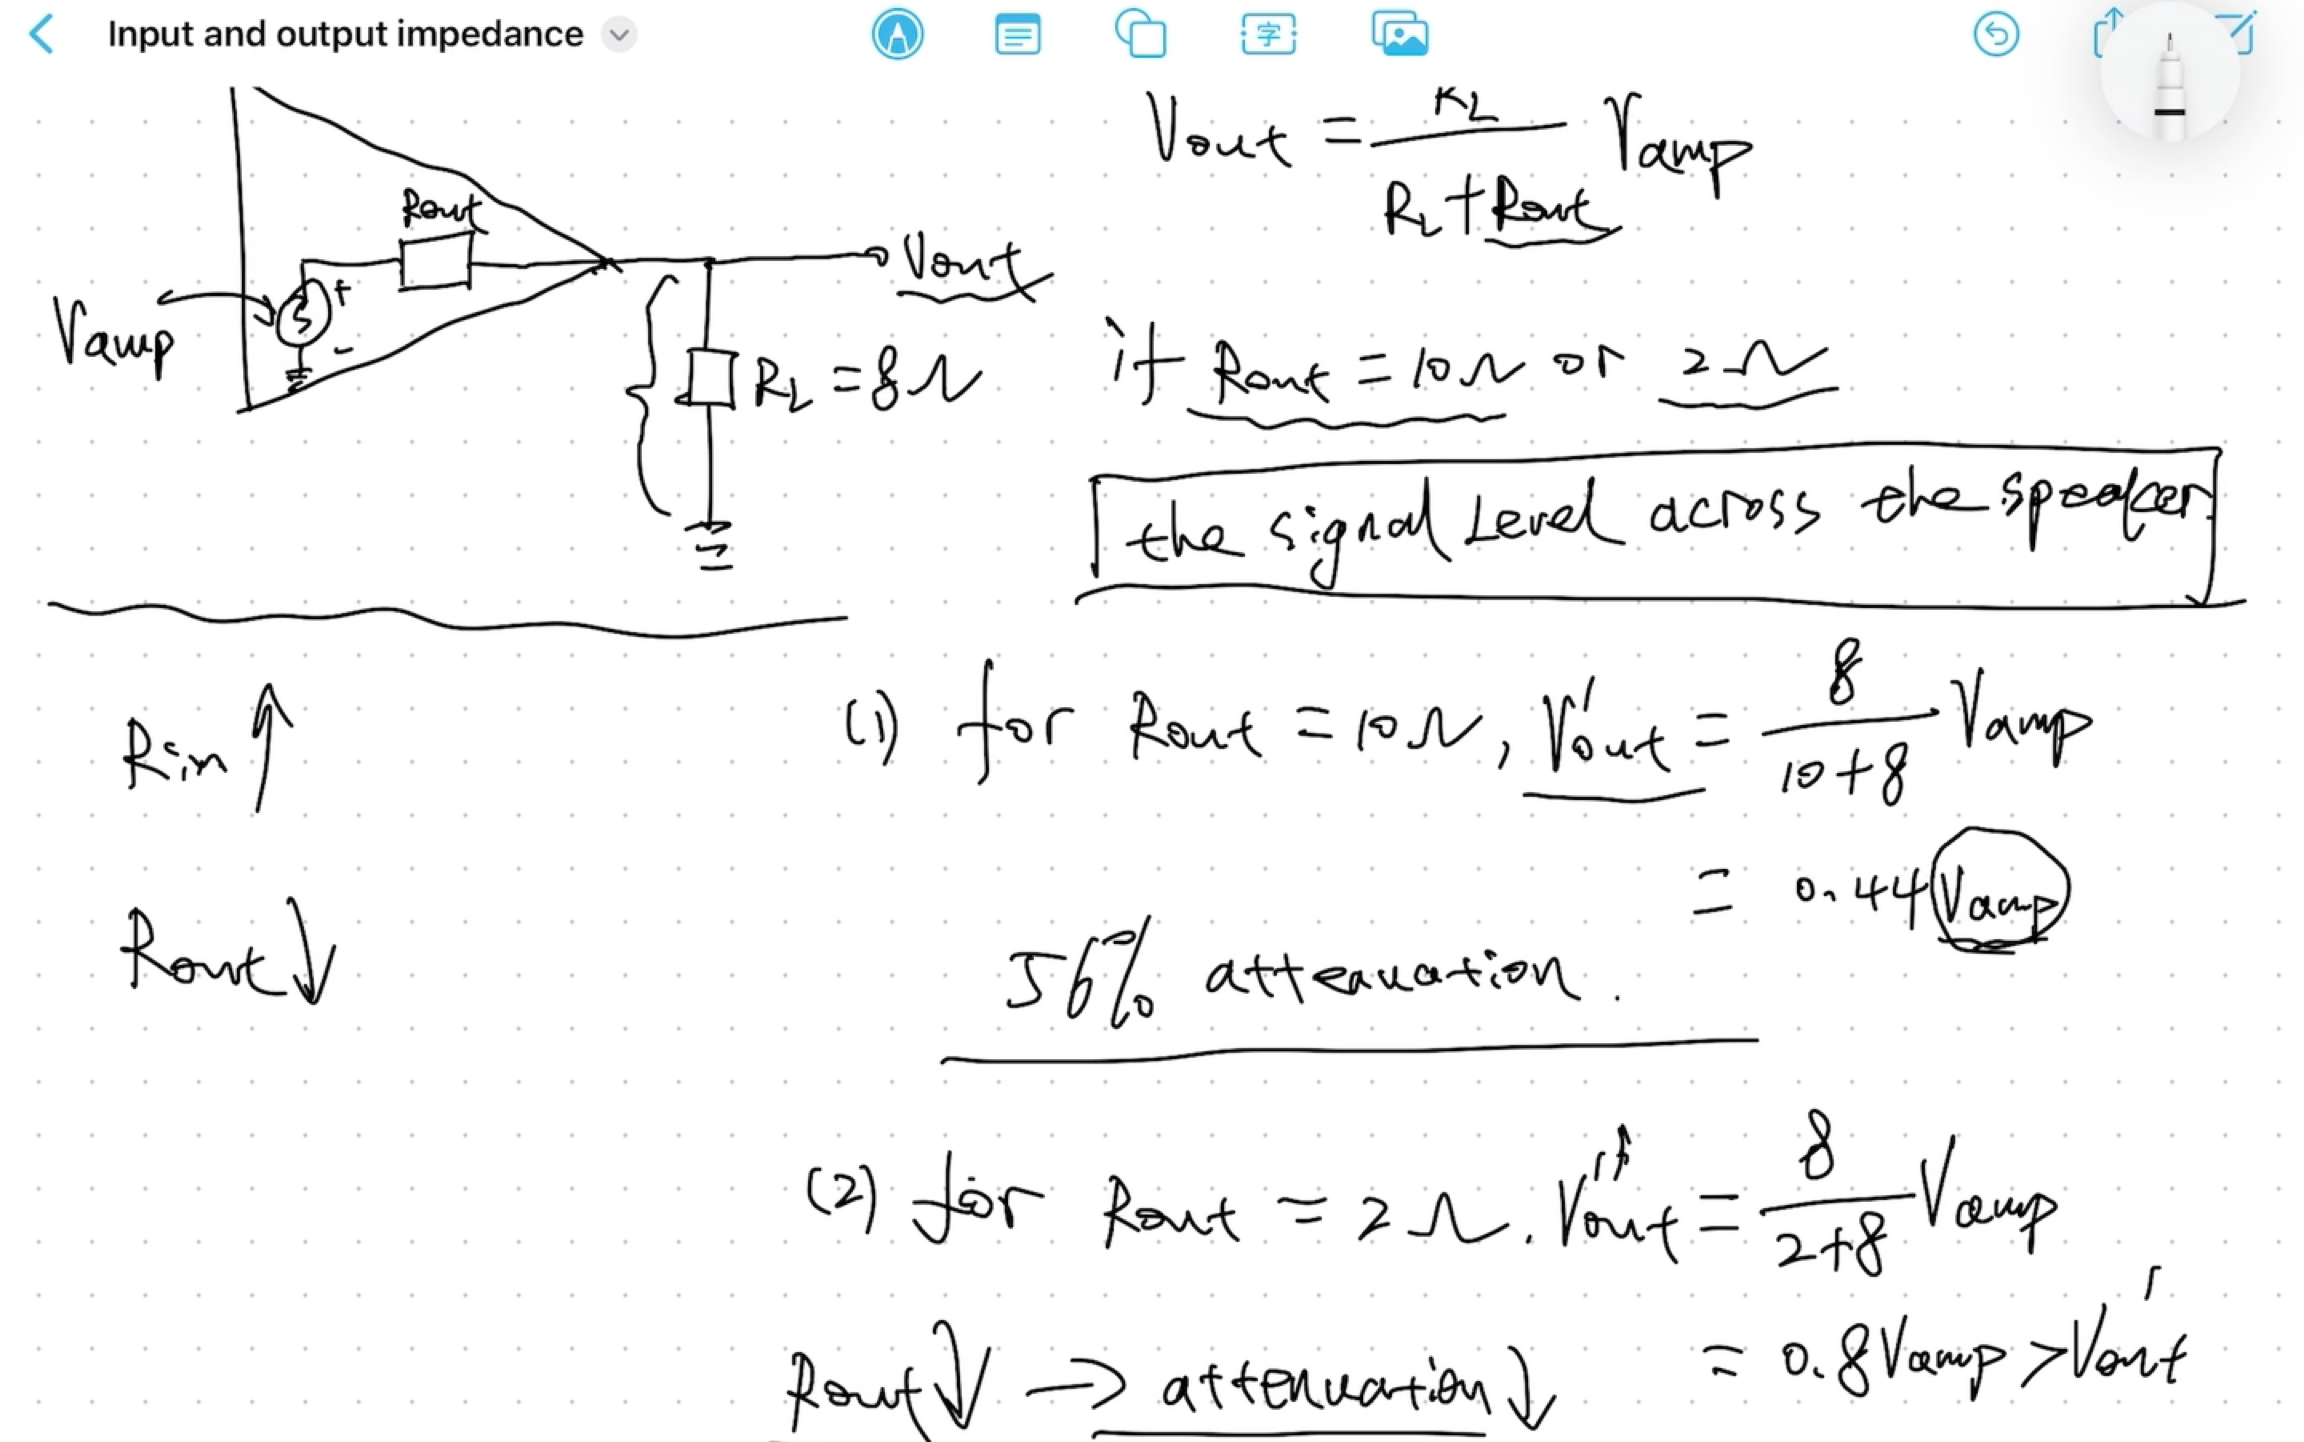 Input and output impedance
字
Vout = RL / (RL + Rout) Vamp
Rout
Vout
+
Vamp
-
RL = 8Ω
if Rout = 10Ω or 2Ω
the signal Level across the speaker
Rin ↑
(1) for Rout = 10Ω, V'out = 8 / (10+8) Vamp
= 0.44 Vamp
Rout ↓
56% attenuation.
(2) for Rout = 2Ω. V''out = 8 / (2+8) Vamp
= 0.8 Vamp > V'out
Rout ↓ → attenuation ↓